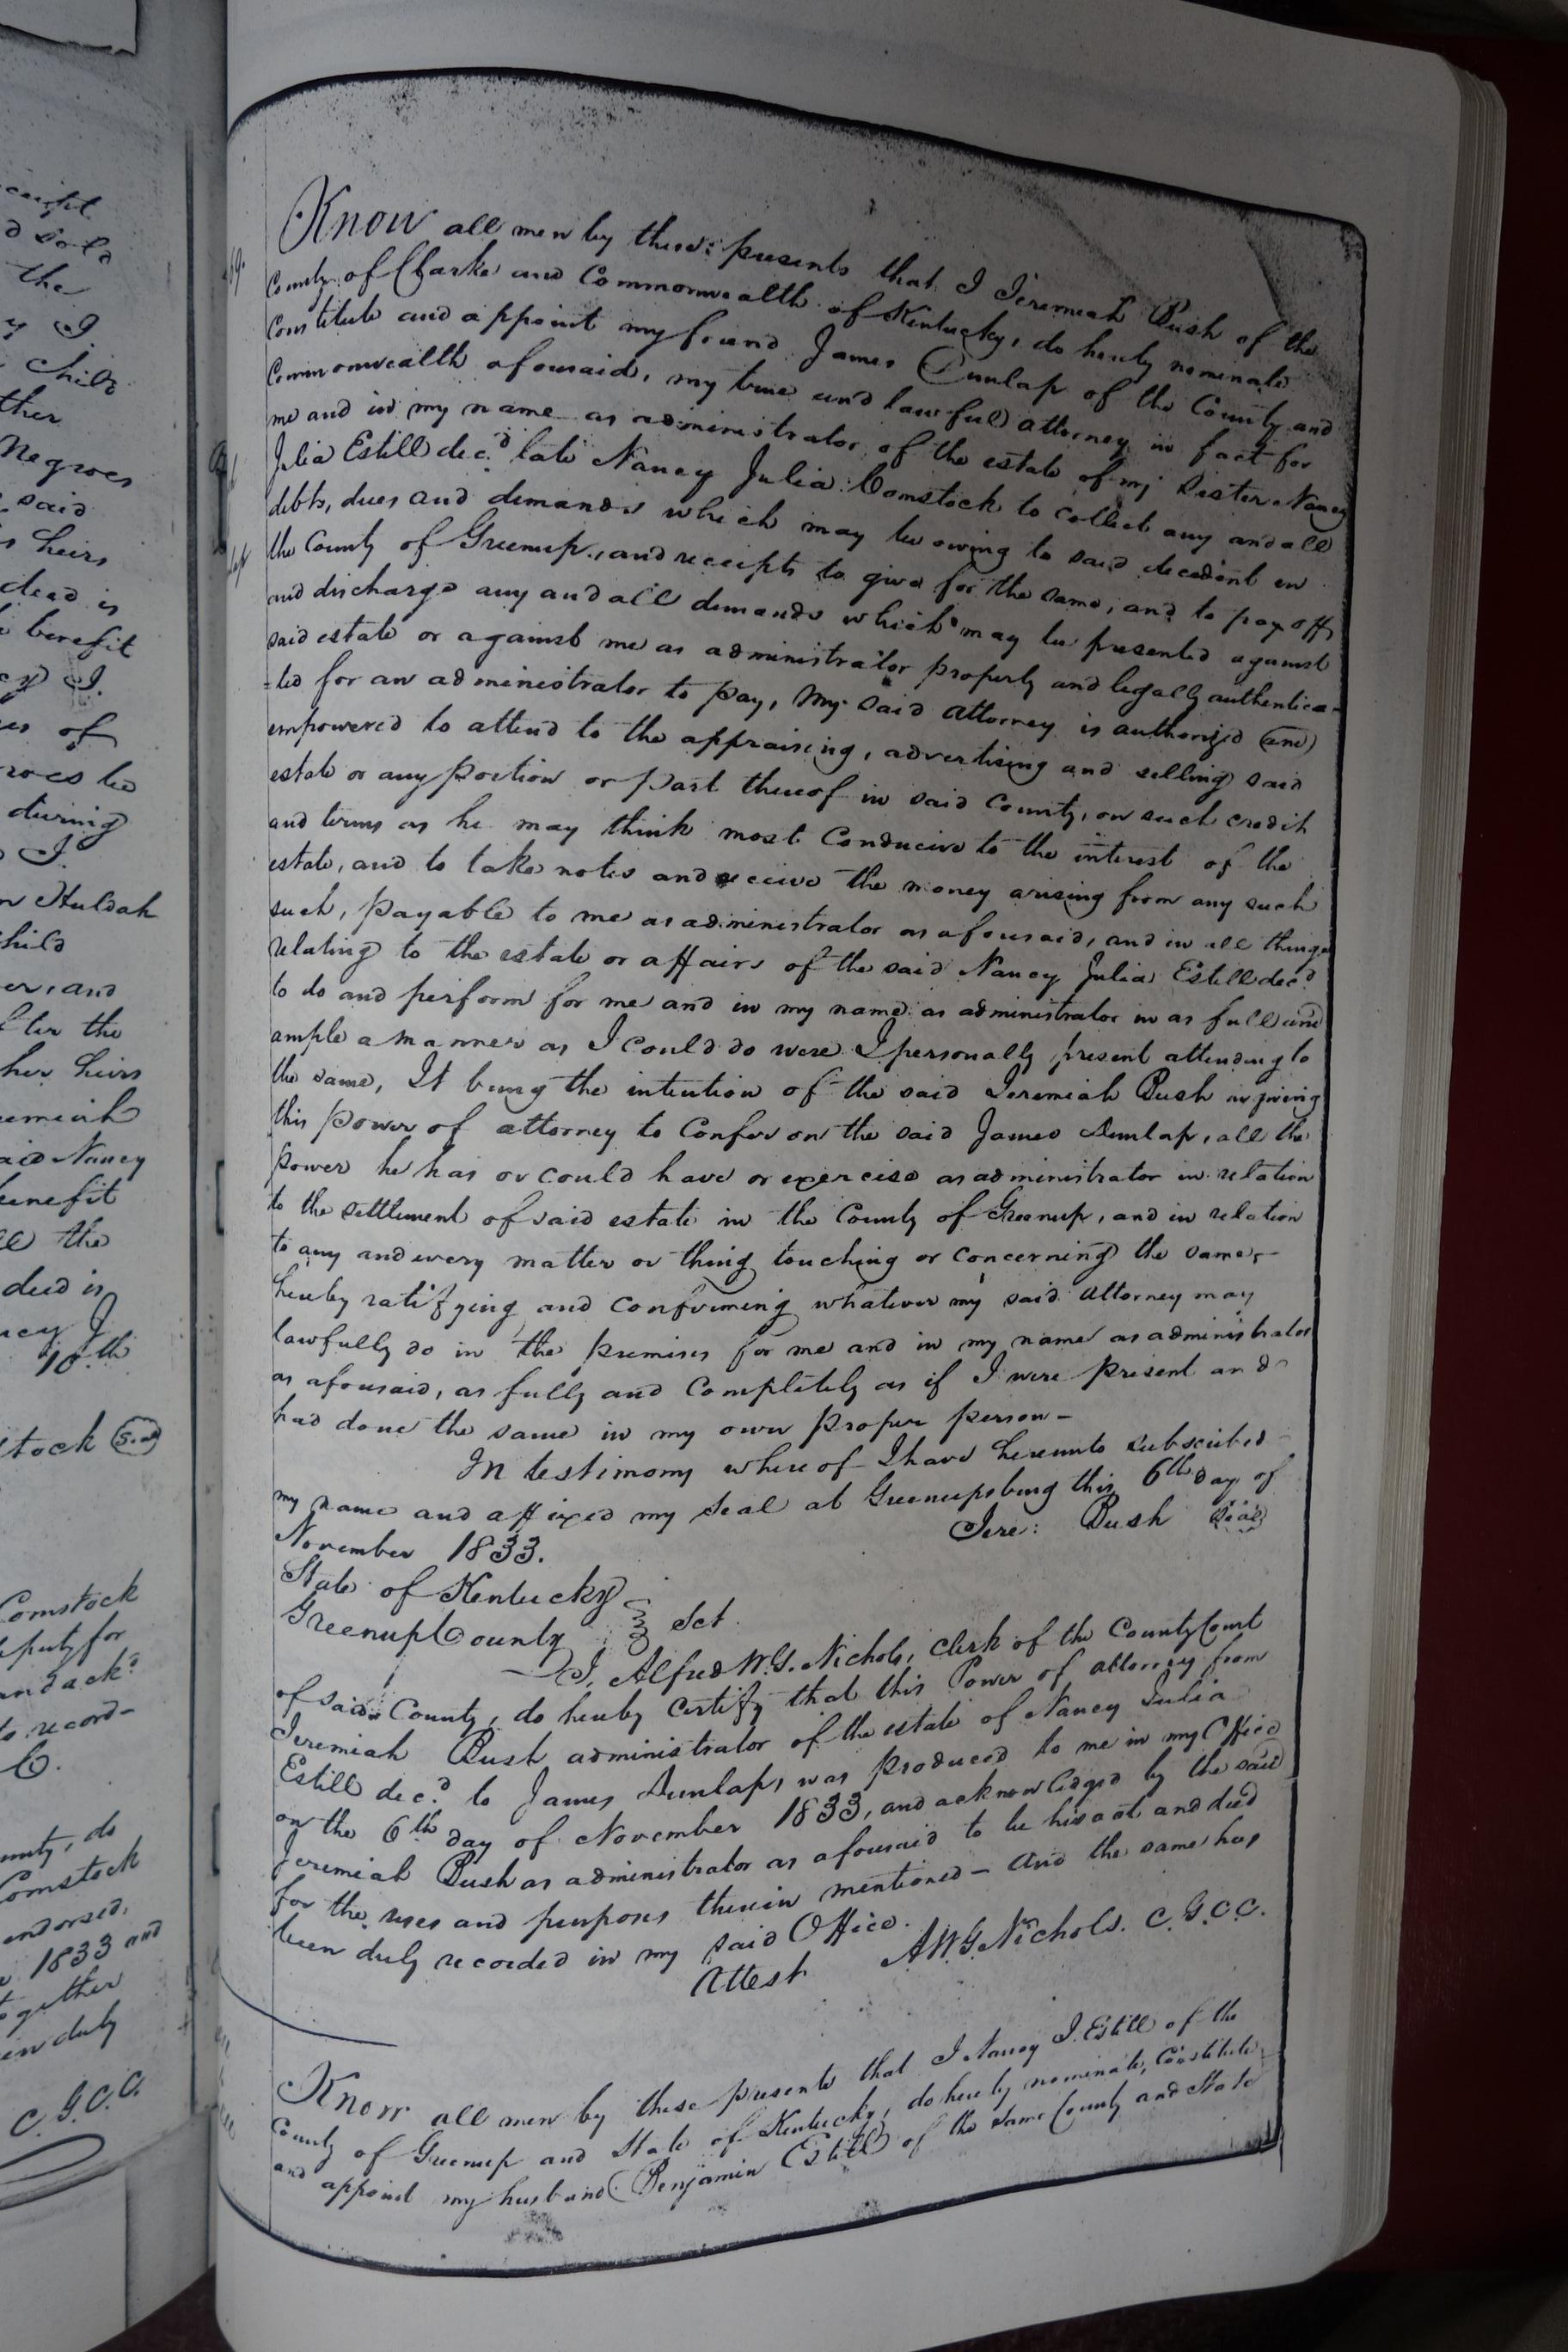 ceipt
d sold
the
y I
child
ther
Negroes
said
s heirs
dead is
benefit
cy I.
es of
roes be
during
I.
n Huldah
child
er, and
fter the
her heirs
remiah
aid Nancy
benefit
ll the
deed is
ncy J
10th
stock Seal
Comstock
deputy for
and ackd
to record-
C.
unty, do
Comstock
endorsed,
1833 and
together
en duly
C. G. C. C.
Know all men by these presents that I Jeremiah Bush of the
County of Clarke and Commonwealth of Kentucky, do hereby nominate
Constitute and appoint my friend James Dunlap of the County and
Commonwealth aforesaid, my true and lawful attorney in fact for
me and in my name as administrator of the estate of my Sister Nancy
Julia Estill decd. late Nancy Julia Comstock to collect any and all
debts, dues and demands which may be owing to said decedent in
the County of Greenup, and receipts to give for the same, and to pay off
and discharge any and all demands which may be presented against
said estate or against me as administrator properly and legally authentica-
=ted for an administrator to pay, My said attorney is authorized and
empowered to attend to the appraising, advertising and selling said
estate or any portion or part thereof in said County, on such credit
and terms as he may think most Conducive to the interest of the
estate, and to take notes and receive the money arising from any such
such, payable to me as administrator as aforesaid, and in all things
relating to the estate or affairs of the said Nancy Julia Estill decd.
to do and perform for me and in my name as administrator in as full and
ample a manner as I could do were I personally present attending to
the same, It being the intention of the said Jeremiah Bush in giving
this power of attorney to Confer on the said James Dunlap, all the
power he has or could have or exercise as administrator in relation
to the settlement of said estate in the County of Greenup, and in relation
to any and every matter or thing touching or concerning the same,-
hereby ratifying and confirming whatever my said attorney may
lawfully do in the premises for me and in my name as administrator
as aforesaid, as fully and Completely as if I were present and
had done the same in my own proper person-
In testimony whereof I have hereunto subscribed
my name and affixed my seal at Greenupsburg this 6th day of
November 1833. Jere: Bush Seal
State of Kentucky
Greenup County Sct
I, Alfred W. G. Nichols, Clerk of the County Court
of said County, do hereby Certify that this Power of attorney from
Jeremiah Bush administrator of the estate of Nancy Julia
Estill decd. to James Dunlap, was produced to me in my Office
on the 6th day of November 1833, and acknowledged by the said
Jeremiah Bush as administrator as aforesaid to be his act and deed
for the uses and purposes therein mentioned- And the same has
been duly recorded in my said Office.
Attest A W G Nichols. C. G. C. C.
Know all men by these presents that I Nancy J. Estill of the
County of Greenup and State of Kentucky, do hereby nominate, Constitute
and appoint my husband Benjamin Estill of the same County and State